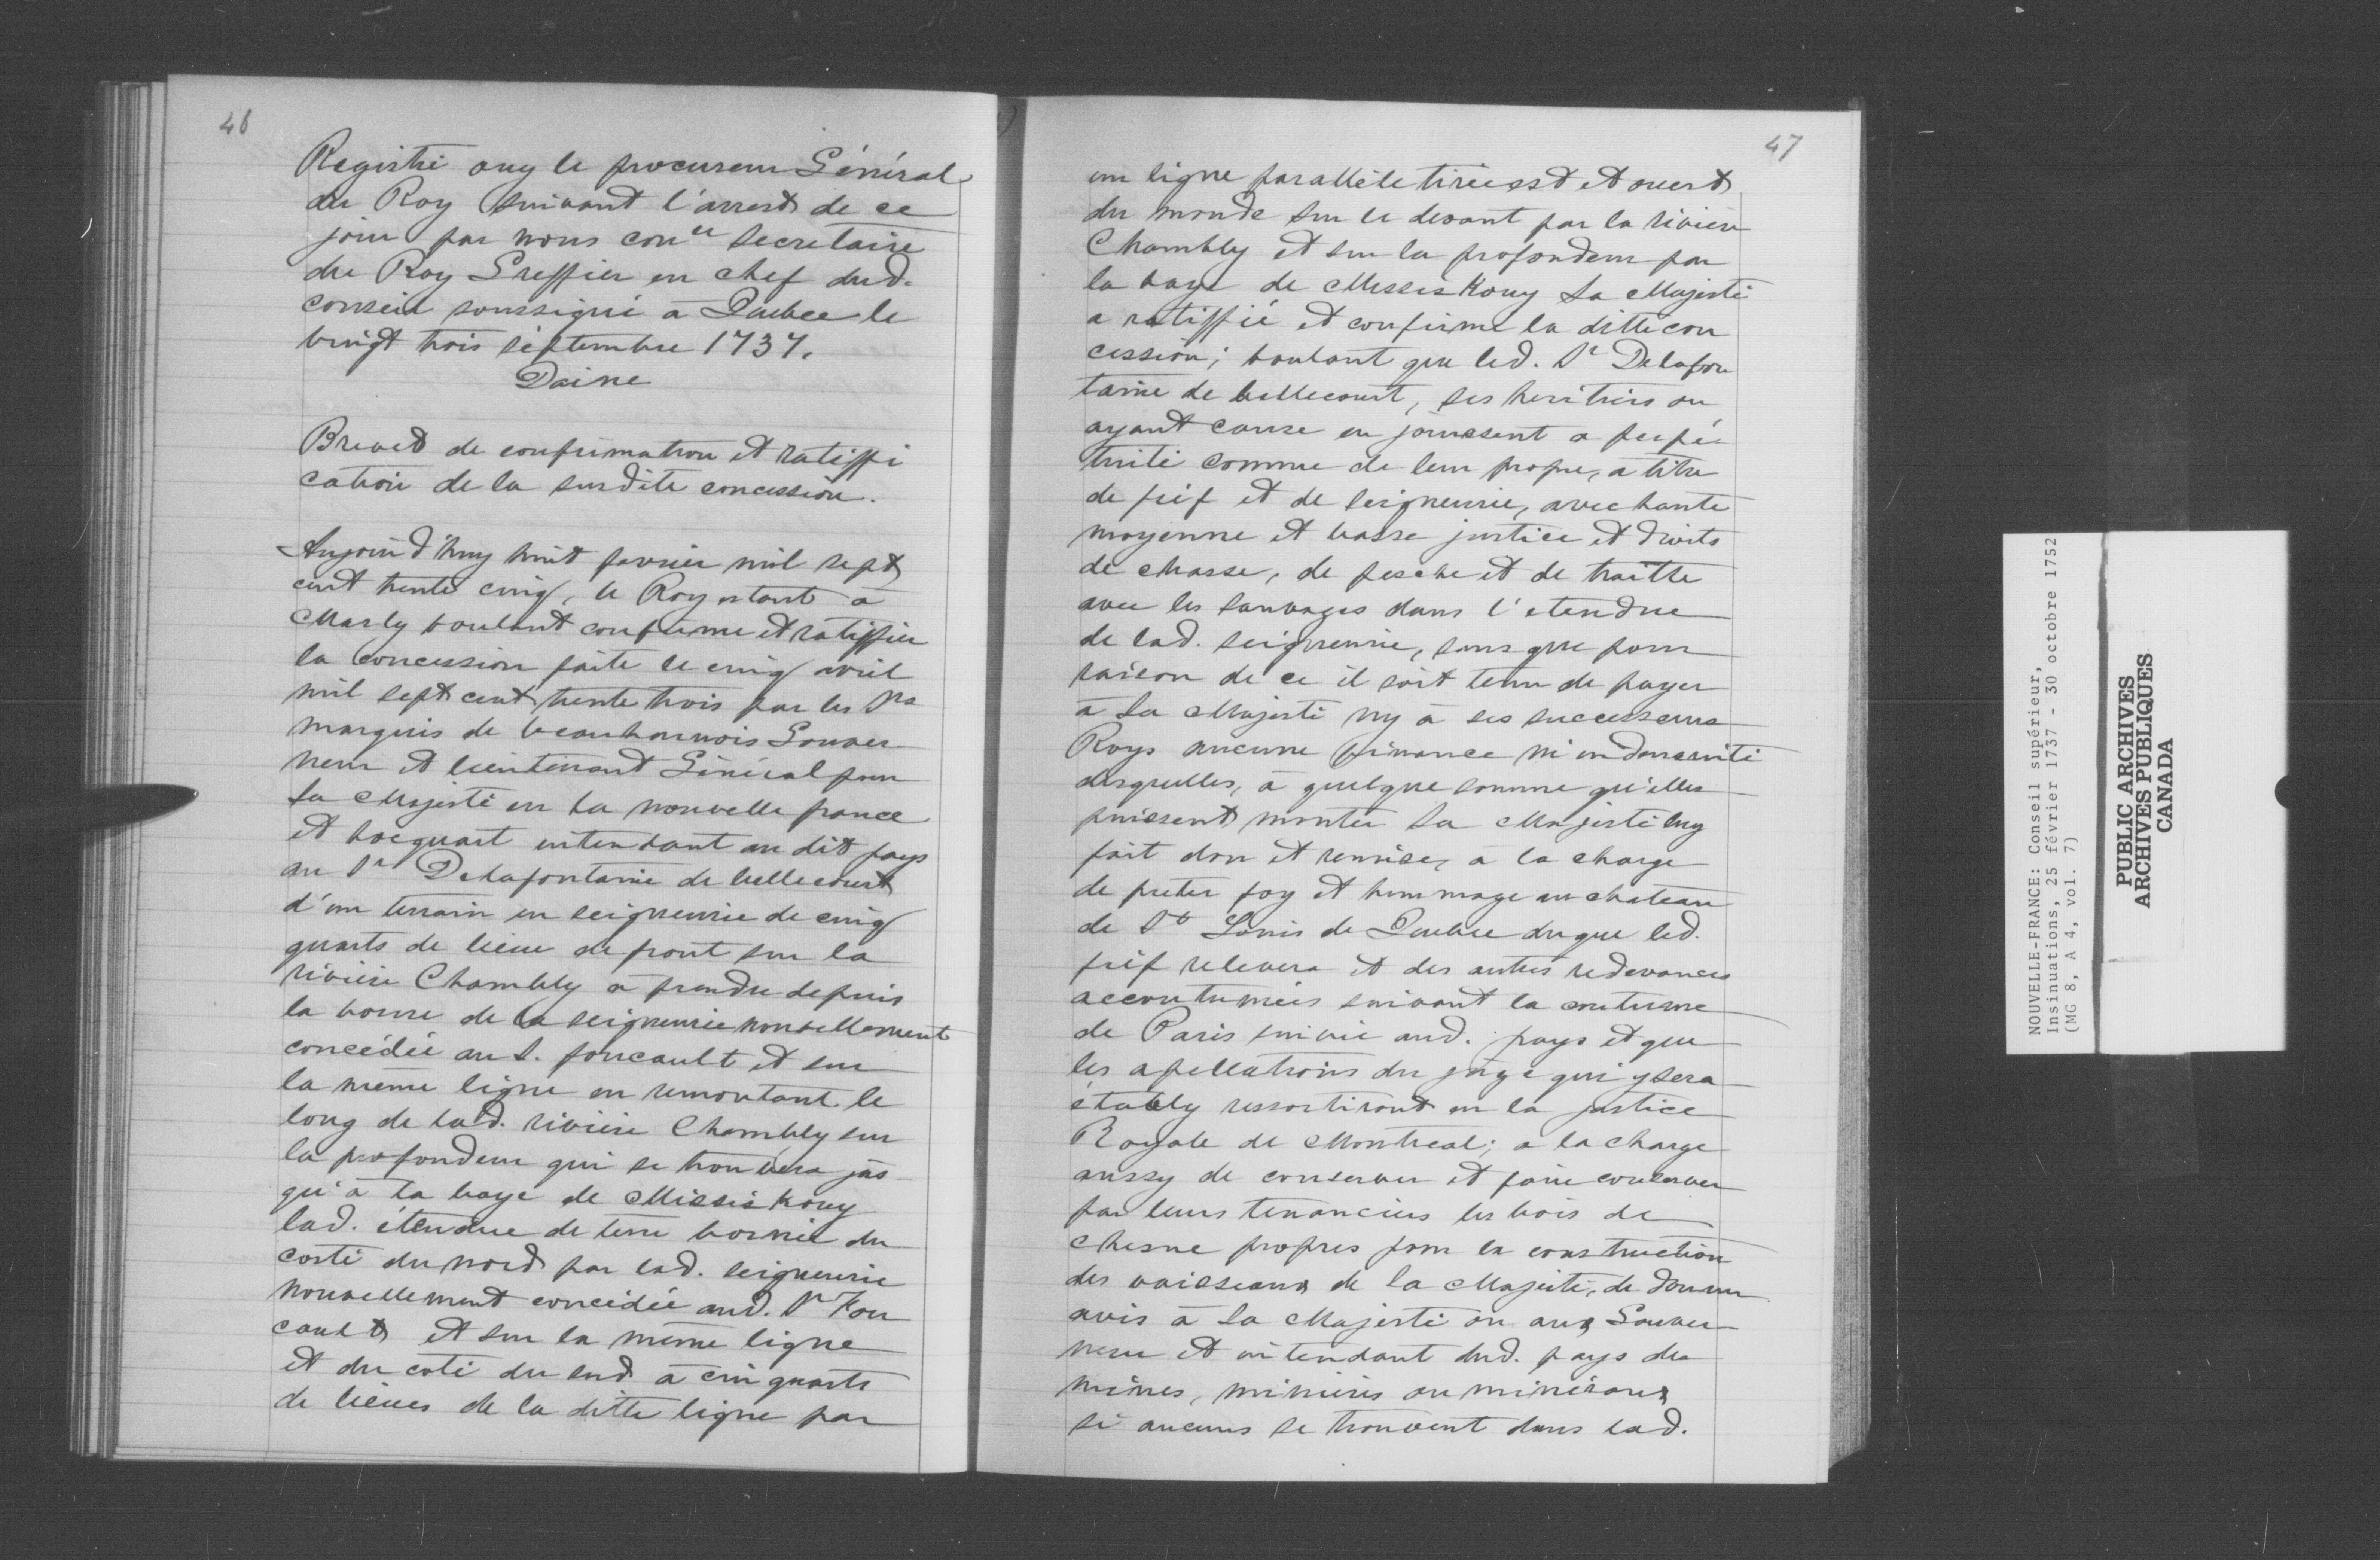 46
Registré ouy le procureur Général
du Roy suivant l'arrest de ce
jour par nous con.er Secretaire
du Roy Greffier en chef dud.
conseil soussigné à Quebec le
vingt trois septembre 1737.
Daine
Brevet de confirmation et ratiffi
cation de la susdite concession.
Aujourd'huy huit fevrier mil sept
cent trente cinq, le Roy etant a
Marly voulant confirme et ratiffier
la concession faite le cinq avril
mil sept cent trente trois par les Srs
marquis de beauharnois Gouver
neur et lieutenant Général pour
Sa Majesté en la nouvelle france
et hocquart intendant au dit pays
au Sr Delafontaine de bellecourt
d'un terrain en seigneurie de cinq
quarts de lieue de front sur la
rivière Chambly a prendre depuis
la borne de la seigneurie nouvellement
concédée au S. foucault et sur
la même ligne en remontant le
long de lad. rivière Chambly sur
la profondeur qui se trouvera jus
qu'à la baye de Missiskouy
lad. étendue de terre bornée du
costé du nord par lad. seigneurie
nouvellement concédée aud. Sr Fou
cault et sur la même ligne
et du coté du sud à cinq quarts
de lieues de la ditte ligne par
47
un ligne parallèle tirée est et ouest
du monde sur le devant par la rivière
Chambly et sur la profondeur par
la baye de Missiskouy Sa Majesté
a ratiffié et confirmé la ditte con
cession; voulant que led. Sr Delafon
taine de bellecourt, ses heritiers ou
ayant cause en jouissent a perpé
tuité comme de leur propre, a titre
de fief et de seigneurie, avec haute
moyenne et basse justice et droits
de chasse, de pesche et de traitte
avec les sauvages dans l'etendue
de lad. seigneurie, sans que pour
raison de ce il soit tenu de payer
à Sa Majesté ny à ses successeurs
Roys aucune finance ni indemnité
desquelles, à quelque somme qu'elles
puissent monter Sa Majesté luy
fait don et remise, a la charge
de preter foy et hommage au chateau
de St Louis de Quebec duquel led.
fief relevera et des autres redevances
accoutumées suivant la coutume
de Paris suivie aud. pays et que
les apellations du juge qui y sera
étably ressortiront en la justice
Royale de Montreal; a la charge
aussy de conserver et faire conserver
par leurs tenanciers les bois de
chesne propres pour la construction
des vaisseaux de Sa Majesté, de donner
avis à Sa Majesté ou aux Gouver
neur et intendant dud. pays des
mines, minieres ou minéraux
si aucuns se trouvent dans lad.
NOUVELLE-FRANCE: Conseil supérieur,
Insinuations, 25 février 1737 - 30 octobre 1752
(MG 8, A 4, vol. 7)
PUBLIC ARCHIVES
ARCHIVES PUBLIQUES
CANADA